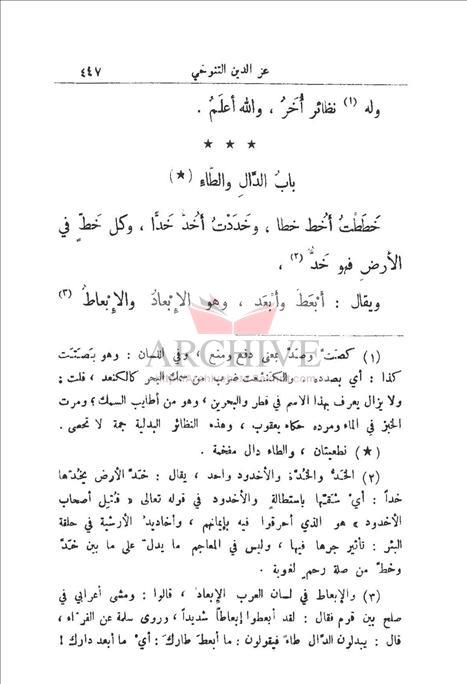 عز الدين التنوخي ٤٤٧
وله (١) نظائر أُخَرُ ، والله أعلَمُ .
* * *
بابُ الدَّالِ والطَّاءِ (★)
خَطَطْتُ أخُط خطا ، وخَدَدْتُ أخُدّ خَدًّا ، وكل خَطٍّ في
الأرضِ فهو خَدٌّ (٢) ،
ويقال : أبْعَطَ وأبْعَد ، وهو الإِبْعادُ والإِبْعاطُ (٣)
(١) كصَتَّ وصَدَّ بمعنى دفع ومنع ، وفي اللسان : وهو بصَتَت
كذا : أي بصدده والكَنْعَت ضرب من سمك البحر كالكنعد ، قلت :
ولا يزال يعرف بهذا الاسم في قطر والبحرين ، وهو من أطايب السمك ؛ ومرت
الخبز في الماء ومرده حكاه يعقوب ، وهذه النظائر البدلية جمة لا تحصى .
(★) نطعيتان ، والطاء دال مفخمة .
(٢) الخَدُّ والخُدَّة والأخدود واحد ، يقال : خَدَّ الأرض يخُدّها
خداً : أيْ شقَّها بإستطالةٍ والأخدود في قوله تعالى « قُتِل أصحاب
الأخدود » هو الذي أحرقوا فيه بإيمانهم ، وأخاديدُ الأرشية في حافة
البئر : تأثير جرها فيها ، وليس في المعاجم ما يدلّ على ما بين خَدَّ
وخطّ من صلة رحمٍ لغوية .
(٣) والإبعاط في لسان العرب الإبعاد ، قالوا : ومشى أعرابي في
صلح بين قوم فقال : لقد أبعطوا إبعاطاً شديداً ، وروى سلمة عن الفرّاء ،
قال : يبدلون الدَّال طاءً فيقولون : ما أبعطَ طارك : أيْ ما أبعد دارك !
ARCHIVE